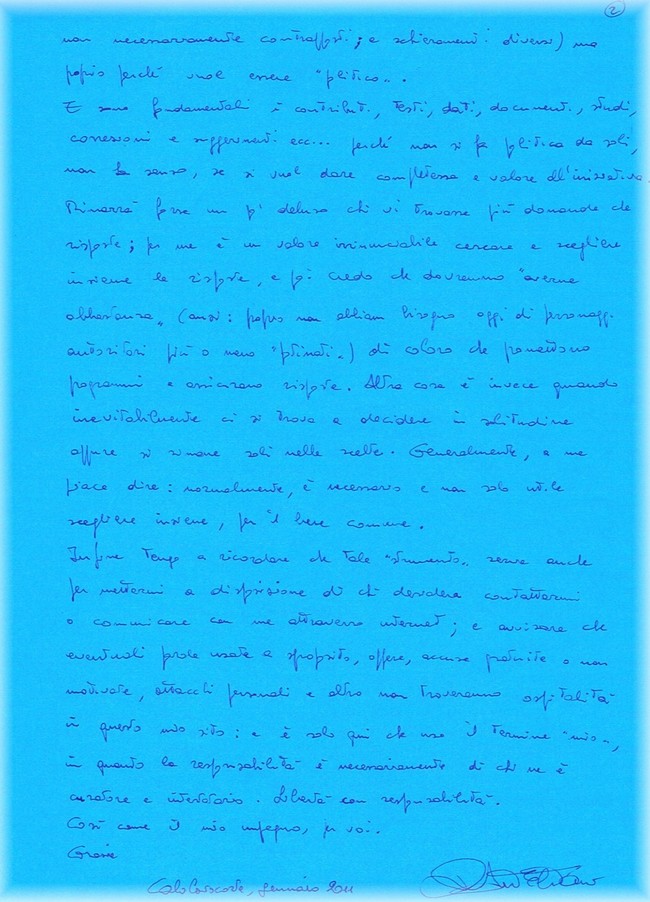 2
non necessariamente contrapposti; e schieramenti diversi) ma
proprio perché vuol essere "politico".
E sono fondamentali i contributi, testi, dati, documenti, studi,
correzioni e suggerimenti ecc... perché non si fa politica da soli,
non ha senso, se si vuol dare completezza e valore all'iniziativa.
Rimarrà forse un po' deluso chi vi trovasse più domande che
risposte; per me è un valore irrinunciabile cercare e scegliere
insieme le risposte, e poi credo che dovremmo "averne
abbastanza" (anzi: proprio non abbiam bisogno oggi di personaggi
autoritari più o meno "ptinati") di coloro che promettono
programmi e assicurano risposte. Altra cosa è invece quando
inevitabilmente ci si trova a decidere in solitudine
oppure si rimane soli nelle scelte. Generalmente, a me
piace dire: normalmente, è necessario e non solo utile
scegliere insieme, per il bene comune.
Infine tengo a ricordare che tale "strumento" serve anche
per mettermi a disposizione di chi desidera contattarmi
o comunicare con me attraverso internet; e avvisare che
eventuali parole usate a sproposito, offese, accuse gratuite o non
motivate, attacchi personali e altro non troveranno ospitalità
in questo mio sito: e è solo qui che uso il termine "mio",
in quanto la responsabilità è necessariamente di chi ne è
curatore e intestatario. Libertà con responsabilità.
Così come il mio impegno, per voi.
Grazie
gennaio 2011